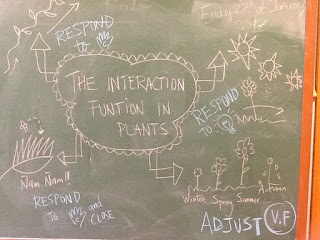 Friday 27th of January
RESPOND
to
THE INTERACTION
FUNTION IN
PLANTS
RESPOND
TO
Ñam Ñam!!
RESPOND
TO
and
CLOSE
Winter Spring Summer Autumn
ADJUST V.F